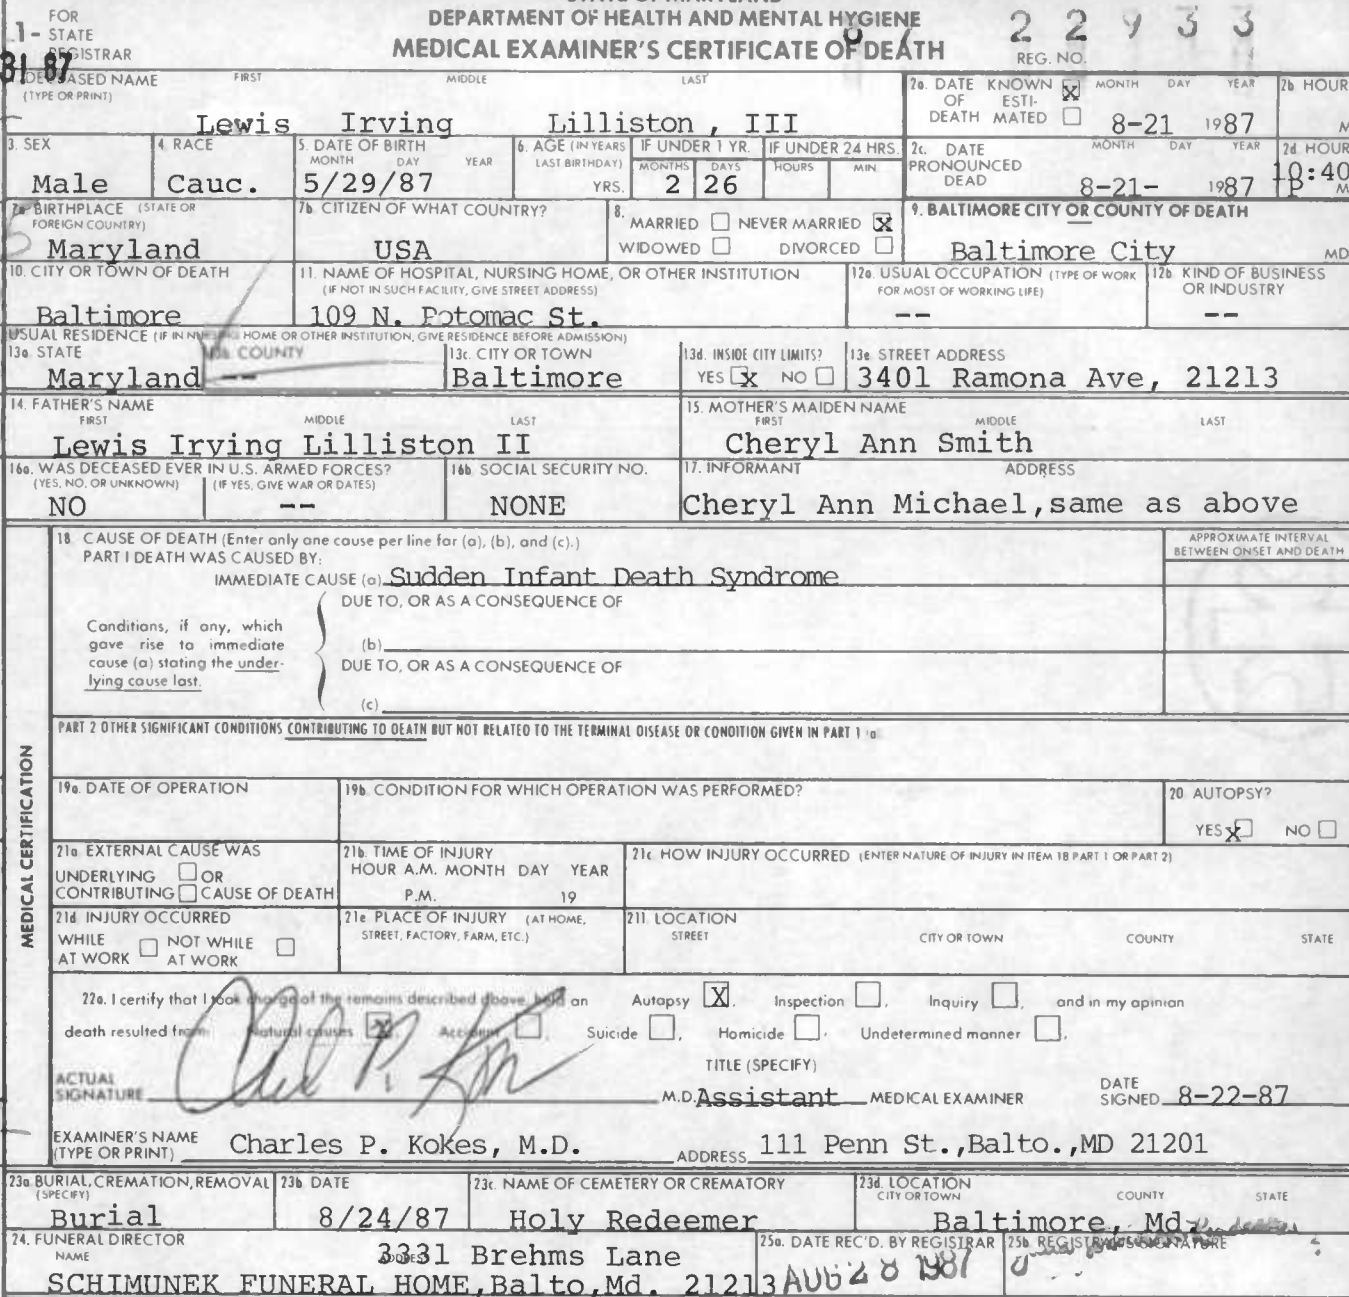 FOR
1- STATE
REGISTRAR
DEPARTMENT OF HEALTH AND MENTAL HYGIENE
MEDICAL EXAMINER'S CERTIFICATE OF DEATH
22933
REG. NO.
31 87
DECEASED NAME FIRST MIDDLE LAST
(TYPE OR PRINT)
Lewis Irving Lilliston, III
2a. DATE KNOWN X MONTH DAY YEAR
OF ESTI-
DEATH MATED 8-21 1987
2b HOUR
M
3. SEX
Male
4. RACE
Cauc.
5. DATE OF BIRTH
MONTH DAY YEAR
5/29/87
6. AGE (IN YEARS
LAST BIRTHDAY)
YRS.
IF UNDER 1 YR. IF UNDER 24 HRS.
MONTHS DAYS HOURS MIN
2 26
2c. DATE MONTH DAY YEAR
PRONOUNCED
DEAD 8-21- 1987
2d HOUR
10:40
P M
7a BIRTHPLACE (STATE OR
FOREIGN COUNTRY)
Maryland
7b CITIZEN OF WHAT COUNTRY?
USA
8.
MARRIED NEVER MARRIED X
WIDOWED DIVORCED
9. BALTIMORE CITY OR COUNTY OF DEATH
Baltimore City MD
10. CITY OR TOWN OF DEATH
Baltimore
11. NAME OF HOSPITAL, NURSING HOME, OR OTHER INSTITUTION
(IF NOT IN SUCH FACILITY, GIVE STREET ADDRESS)
109 N. Potomac St.
12a. USUAL OCCUPATION (TYPE OF WORK
FOR MOST OF WORKING LIFE)
--
12b KIND OF BUSINESS
OR INDUSTRY
--
USUAL RESIDENCE (IF IN NURSING HOME OR OTHER INSTITUTION, GIVE RESIDENCE BEFORE ADMISSION)
13a STATE
Maryland
13b COUNTY
--
13c. CITY OR TOWN
Baltimore
13d. INSIDE CITY LIMITS?
YES X NO
13e STREET ADDRESS
3401 Ramona Ave, 21213
14. FATHER'S NAME
FIRST MIDDLE LAST
Lewis Irving Lilliston II
15. MOTHER'S MAIDEN NAME
FIRST MIDDLE LAST
Cheryl Ann Smith
16a. WAS DECEASED EVER IN U.S. ARMED FORCES?
(YES, NO, OR UNKNOWN) (IF YES, GIVE WAR OR DATES)
NO --
16b SOCIAL SECURITY NO.
NONE
17. INFORMANT ADDRESS
Cheryl Ann Michael,same as above
MEDICAL CERTIFICATION
18 CAUSE OF DEATH (Enter only one cause per line for (a), (b), and (c).)
PART I DEATH WAS CAUSED BY:
IMMEDIATE CAUSE (a) Sudden Infant Death Syndrome
APPROXIMATE INTERVAL
BETWEEN ONSET AND DEATH
DUE TO, OR AS A CONSEQUENCE OF
Conditions, if any, which
gave rise to immediate
cause (a) stating the under-
lying cause last.
(b)
DUE TO, OR AS A CONSEQUENCE OF
(c)
PART 2 OTHER SIGNIFICANT CONDITIONS CONTRIBUTING TO DEATH BUT NOT RELATED TO THE TERMINAL DISEASE OR CONDITION GIVEN IN PART 1 (a)
19a. DATE OF OPERATION
19b. CONDITION FOR WHICH OPERATION WAS PERFORMED?
20 AUTOPSY?
YES X NO
21a EXTERNAL CAUSE WAS
UNDERLYING OR
CONTRIBUTING CAUSE OF DEATH
21b. TIME OF INJURY
HOUR A.M. MONTH DAY YEAR
P.M. 19
21c HOW INJURY OCCURRED (ENTER NATURE OF INJURY IN ITEM 18 PART 1 OR PART 2)
21d INJURY OCCURRED
WHILE NOT WHILE
AT WORK AT WORK
21e PLACE OF INJURY (AT HOME,
STREET, FACTORY, FARM, ETC.)
21f. LOCATION
STREET CITY OR TOWN COUNTY STATE
22a. I certify that I took charge of the remains described above, held an Autopsy X, Inspection , Inquiry , and in my opinion
death resulted from: Natural causes X, Accident , Suicide , Homicide , Undetermined manner .
TITLE (SPECIFY)
ACTUAL
SIGNATURE
M.D. Assistant MEDICAL EXAMINER
DATE
SIGNED 8-22-87
EXAMINER'S NAME
(TYPE OR PRINT) Charles P. Kokes, M.D. ADDRESS 111 Penn St.,Balto.,MD 21201
23a BURIAL, CREMATION, REMOVAL
(SPECIFY)
Burial
23b DATE
8/24/87
23c. NAME OF CEMETERY OR CREMATORY
Holy Redeemer
23d. LOCATION
CITY OR TOWN COUNTY STATE
Baltimore, Md.
24. FUNERAL DIRECTOR
NAME ADDRESS
3331 Brehms Lane
SCHIMUNEK FUNERAL HOME,Balto,Md. 21213
25a. DATE REC'D. BY REGISTRAR
AUG 28 1987
25b REGISTRAR'S SIGNATURE